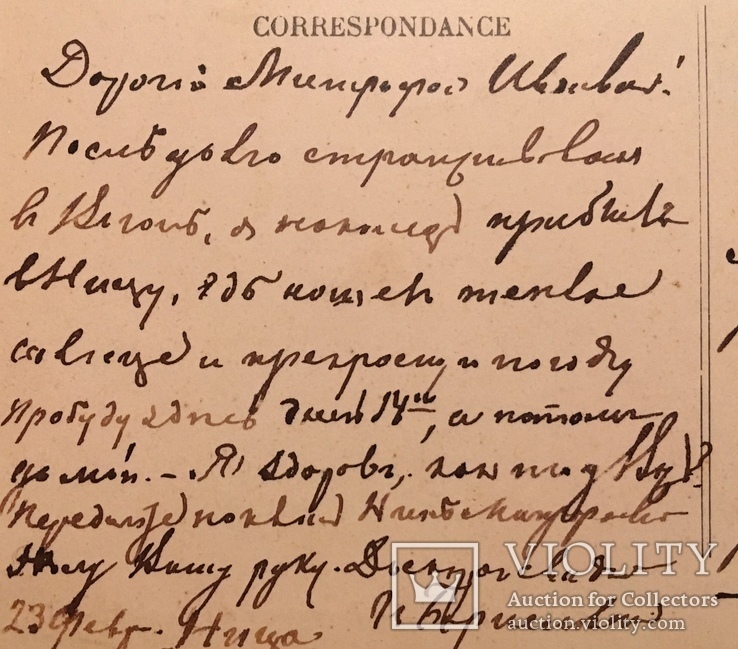 CORRESPONDANCE
Дорогой Митрофан Иванович!
Послѣ долгаго странствованія
въ, я наконецъ прибылъ
въ Ниццу, гдѣ нашелъ теплое
солнце и прекрасную погоду
Пробуду здѣсь дней 14ть, а потомъ
домой. – Я здоровъ, какъ
Передайте поклонъ
Жму Вашу руку. До свиданія
23 Февр. Ницца
VIOLITY
Auction for Collectors
auction.violity.com